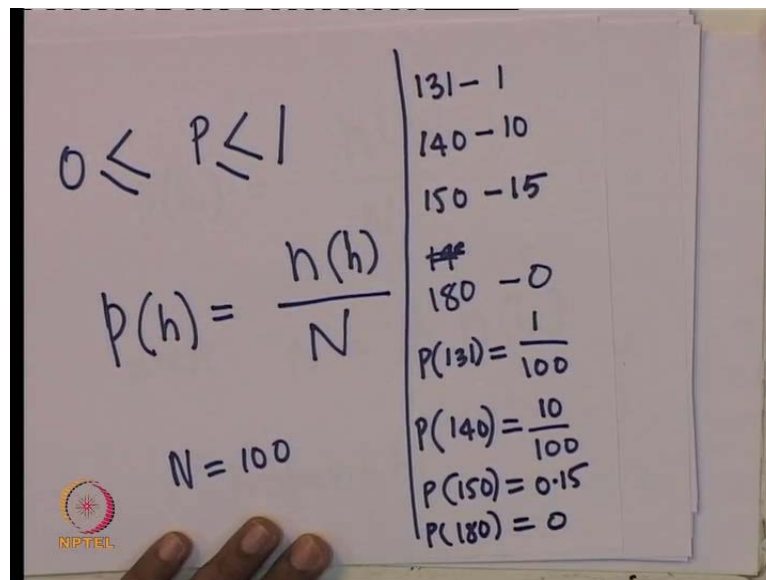 0 ≤ P ≤ 1
p(h) = n(h)/N
N = 100
131 - 1
140 - 10
150 - 15
180 - 0
P(131) = 1/100
P(140) = 10/100
P(150) = 0.15
P(180) = 0
NPTEL